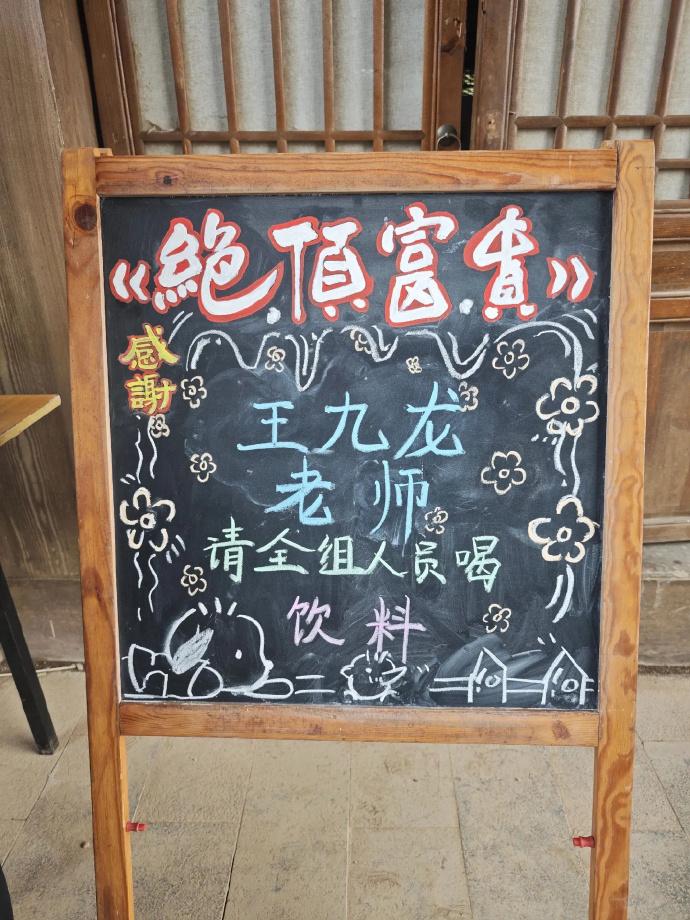 《絕頂富貴》
感謝
王九龙
老师
请全组人员喝
饮料